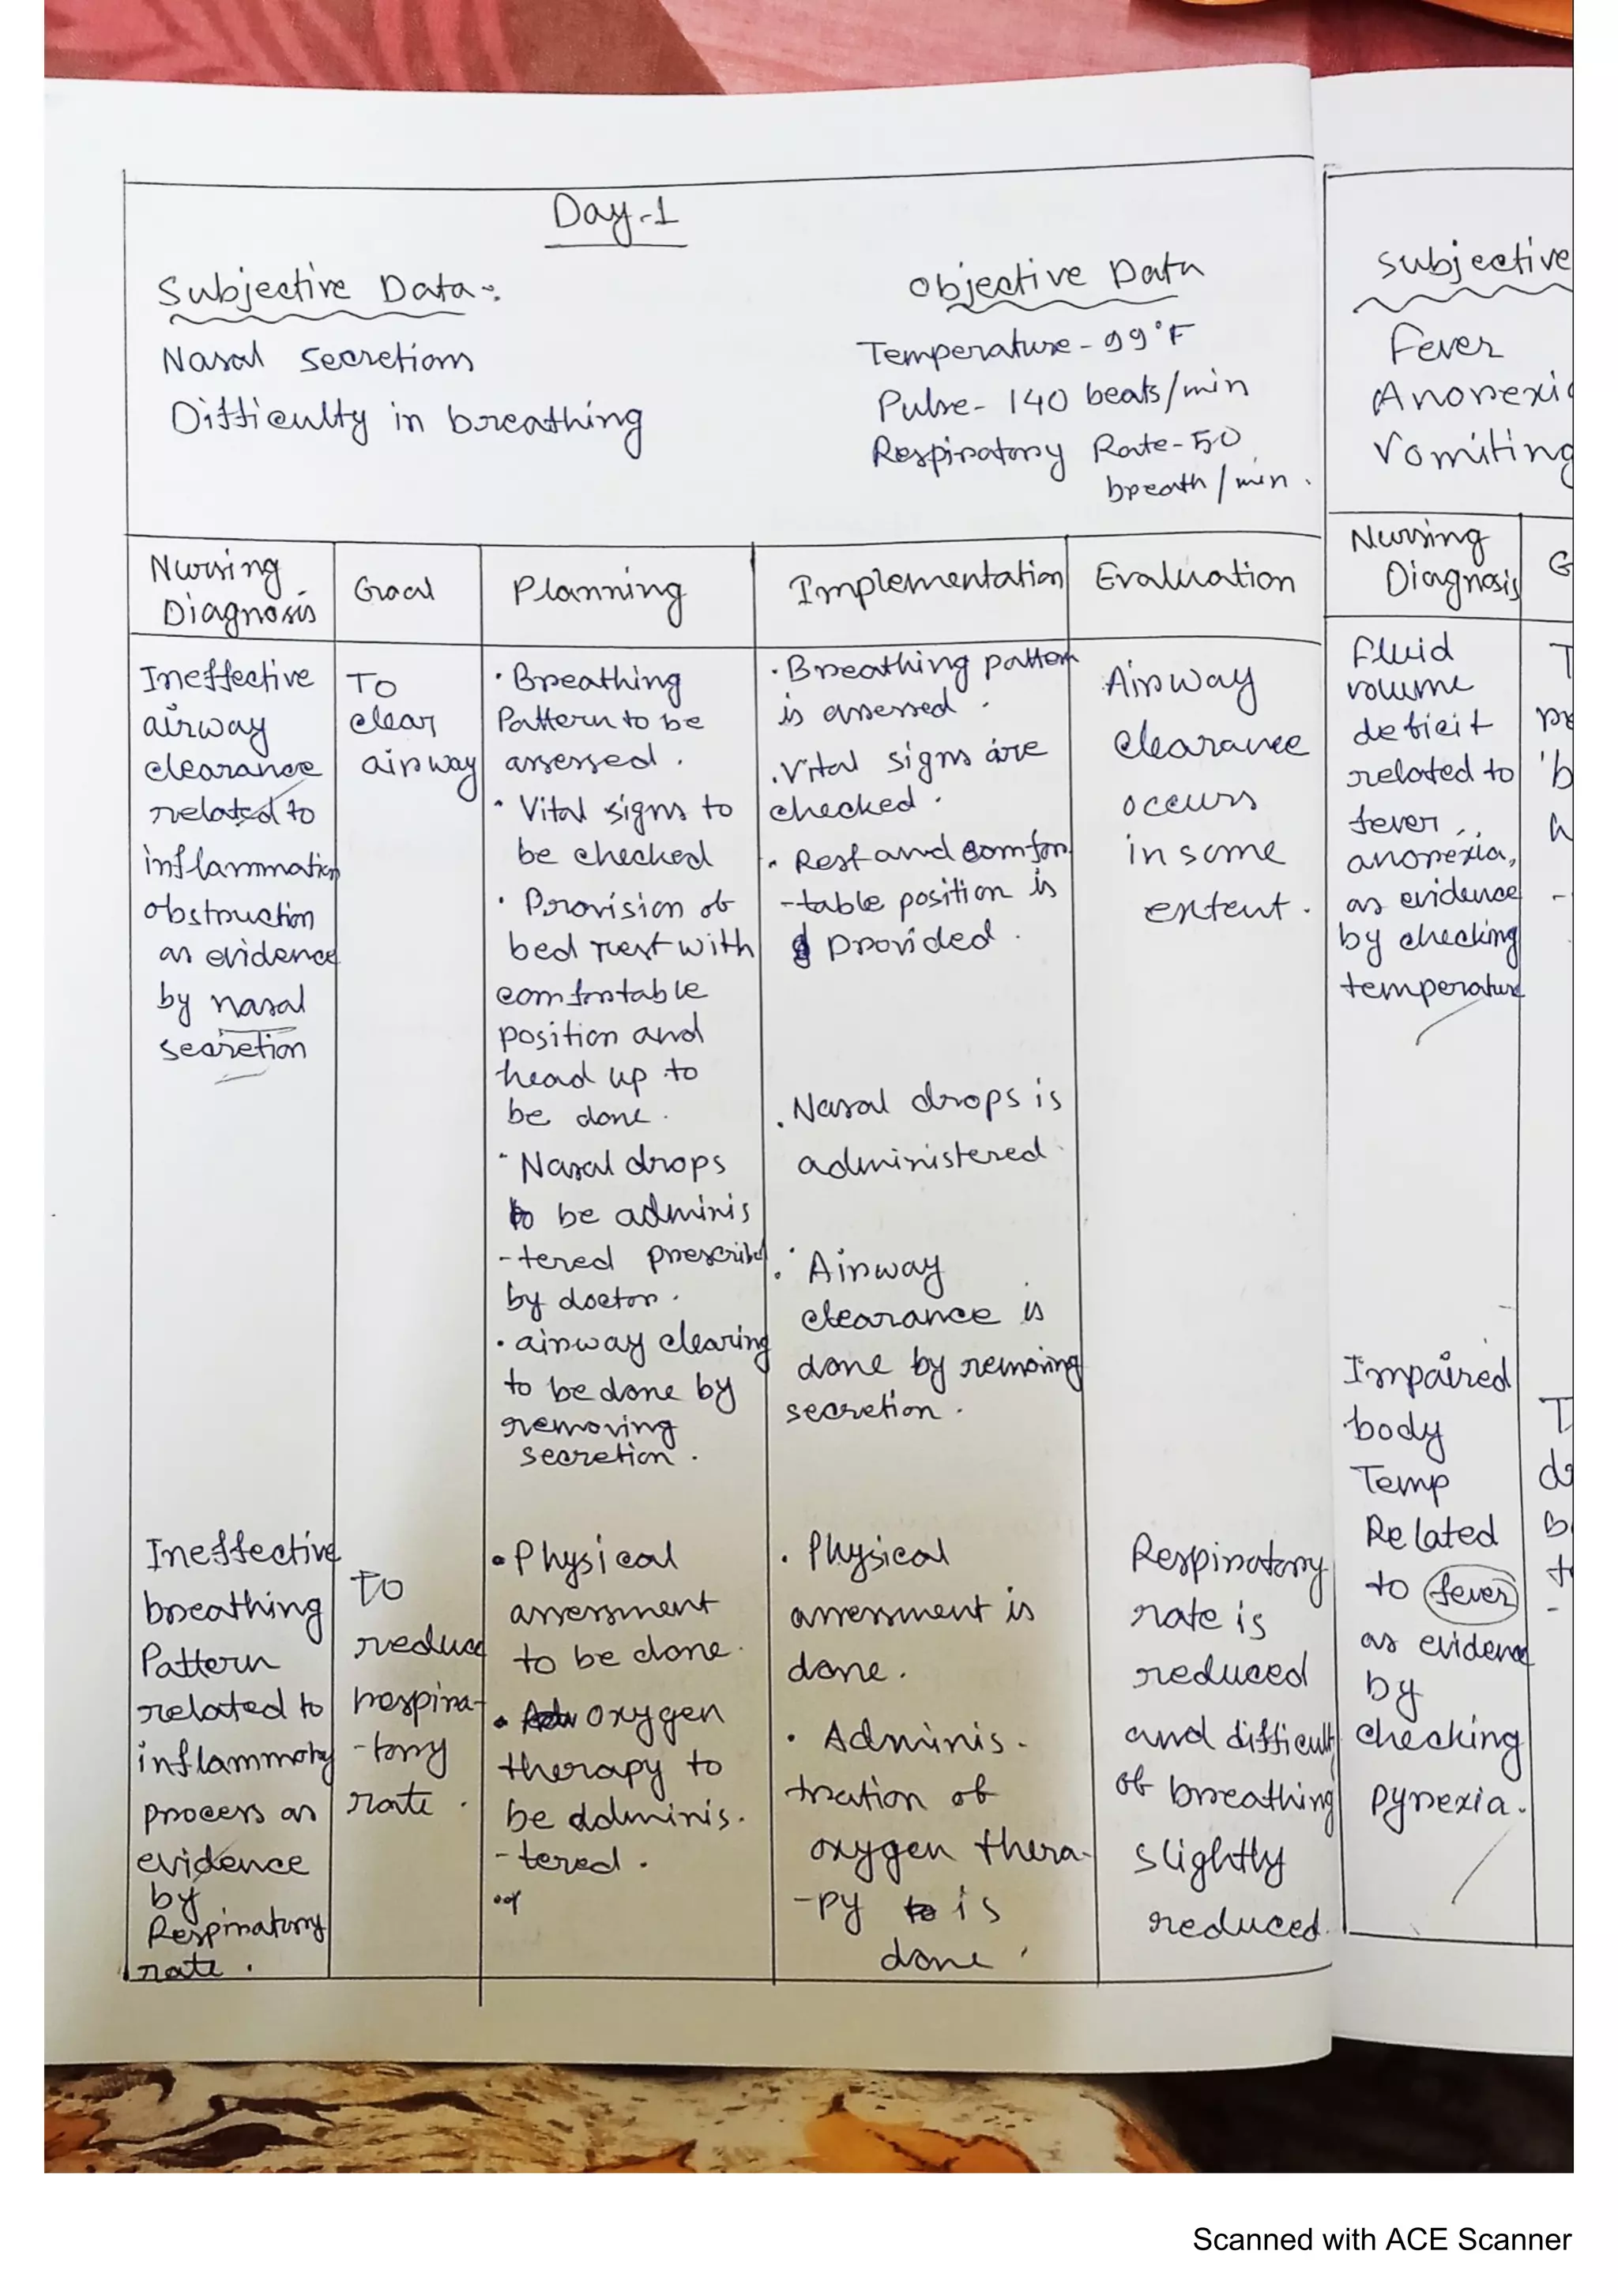 Day-1
Subjective Data:
Nasal secretions
Difficulty in breathing
Objective Data
Temperature - 99°F
Pulse- 140 beats/min
Respiratory Rate-50
breath/min.
Nursing
Diagnosis
Goal
Planning
Implementation
Evaluation
Ineffective
airway
clearance
related to
inflammation
obstruction
as evidence
by nasal
secretion
To
clear
airway
· Breathing
Pattern to be
assessed.
· Vital signs to
be checked
· Provision of
bed rest with
comfortable
position and
head up to
be done.
· Nasal drops
to be adminis
-tered prescribed
by doctor.
· airway clearing
to be done by
removing
secretion.
· Breathing pattern
is assessed.
· Vital signs are
checked.
· Rest and comfor
-table position is
provided.
· Nasal drops is
administered.
· Airway
clearance is
done by removing
secretion.
Airway
clearance
occurs
in some
extent.
Ineffective
breathing
Pattern
related to
inflammatory
process as
evidence
by
Respiratory
rate.
To
reduce
respira-
-tory
rate.
· Physical
assessment
to be done.
· Oxygen
therapy to
be adminis-
-tered.
· Physical
assessment is
done.
· Adminis-
tration of
oxygen thera-
-py is
done.
Respiratory
rate is
reduced
and difficulty
of breathing
slightly
reduced.
Subjective
Fever
Anorexia
Vomiting
Nursing
Diagnosis
G
Fluid
volume
deficit
related to
fever,
anorexia,
as evidence
by checking
temperature
Impaired
body
Temp
Related
to fever
as evidence
by
checking
pyrexia.
Scanned with ACE Scanner